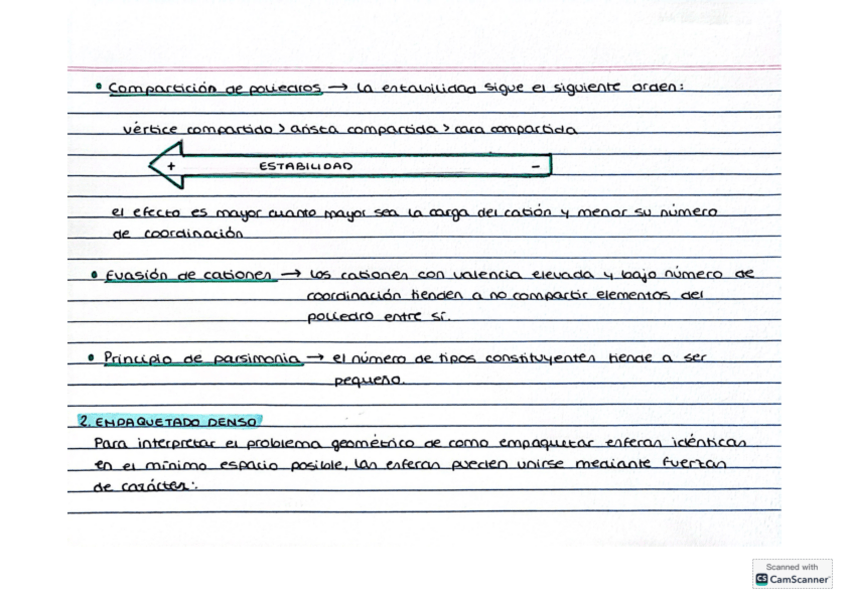 • Compartición de poliedros → La estabilidad sigue el siguiente orden:
vértice compartido > arista compartida > cara compartida
+ ESTABILIDAD -
el efecto es mayor cuanto mayor sea la carga del catión y menor su número
de coordinación
• Evasión de cationes → Los cationes con valencia elevada y bajo número de
coordinación tienden a no compartir elementos del
poliedro entre sí.
• Principio de parsimonia → el número de tipos constituyentes tiende a ser
pequeño.
2. EMPAQUETADO DENSO
Para interpretar el problema geométrico de como empaquetar esferas idénticas
en el mínimo espacio posible, las esferas pueden unirse mediante fuerzas
de carácter:
Scanned with
CS CamScanner